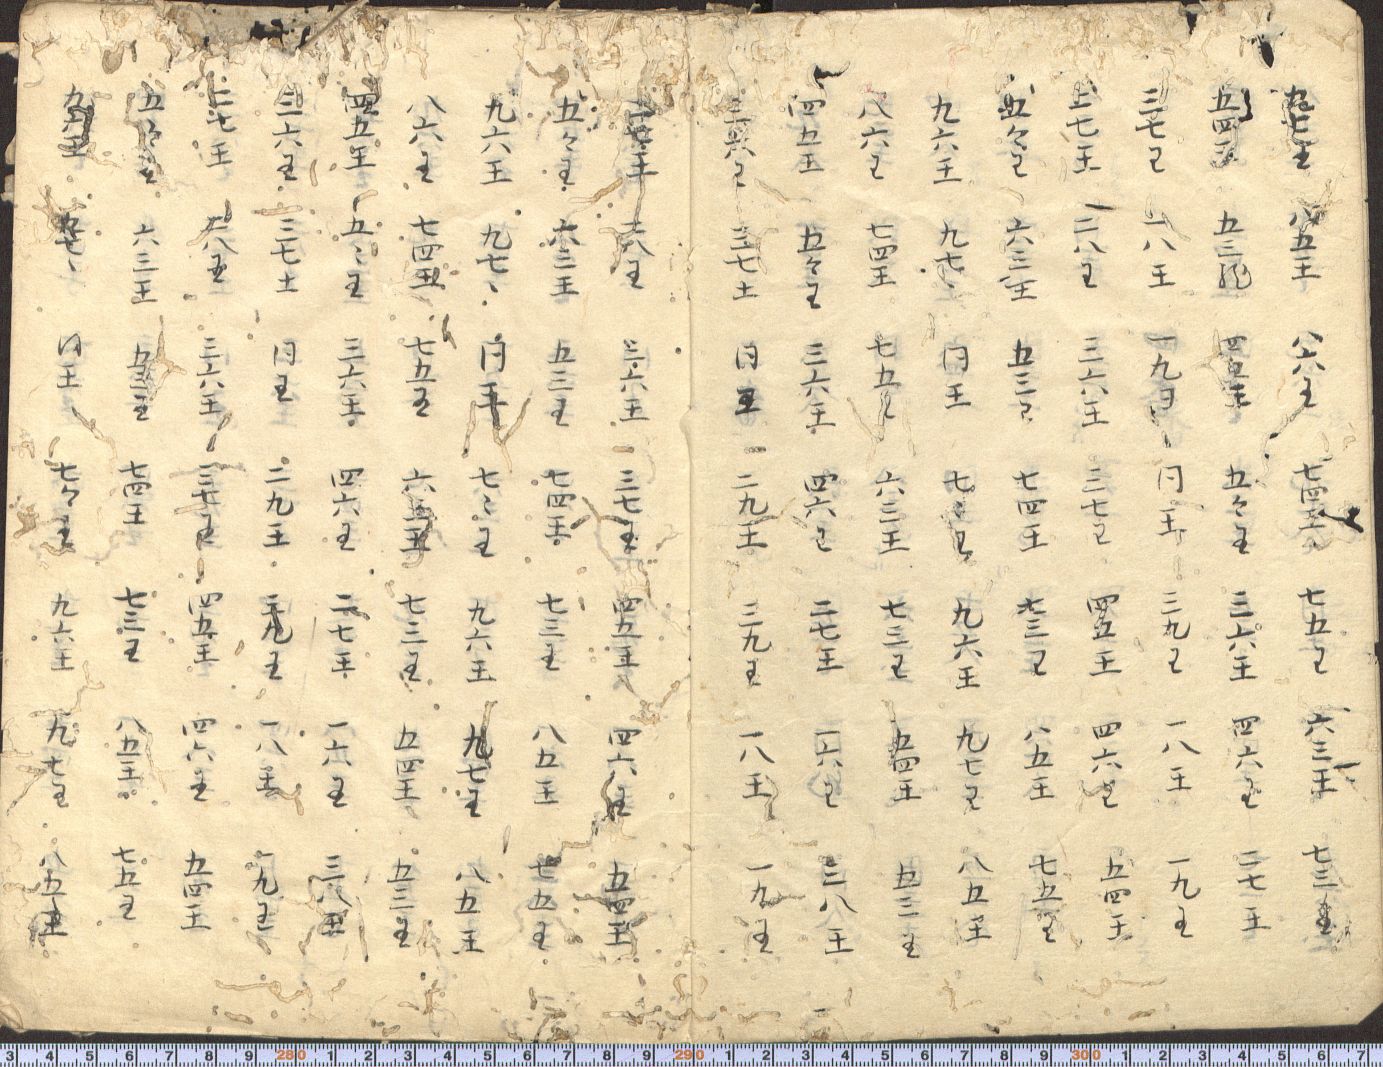 九七王 八五王 八六王 七四王 七五王 六三王 七三王
五四王 五三 四五王 五々王 三六王 四六王 二七王
三七王 一八王 一九 同王 三九王 一八王 一九王
二七王 二八王 三六王 三七王 四五王 四六王 五四王
五々王 六三王 五三王 七四王 七三王 八五王 七五王
九六王 九七、 同王 七々王 九六王 九七王 八五王
八六王 七四王 七五王 六三王 七三王 五四王 五三王
四五王 五々王 三六王 四六王 二七王 一六王 三八王
三六王 三七土 同王 二九王 三九王 一八王 一九王
二七王 二八王 三六王 三七王 四五王 四六王 五四王
五々王 六三王 五三王 七四王 七三王 八五王 七五王
九六王 九七、 同王 七々王 九六王 九七王 八五王
八六王 七四王 七五王 六三王 七三王 五四王 五三王
四五王 五々王 三六王 四六王 二七王 一六王 三八王
三六王 三七土 同王 二九王 三九王 一八王 一九王
二七王 二八王 三六王 三七王 四五王 四六王 五四王
五々王 六三王 五三王 七四王 七三王 八五王 七五王
九六王 九七、 同王 七々王 九六王 九七王 八五王